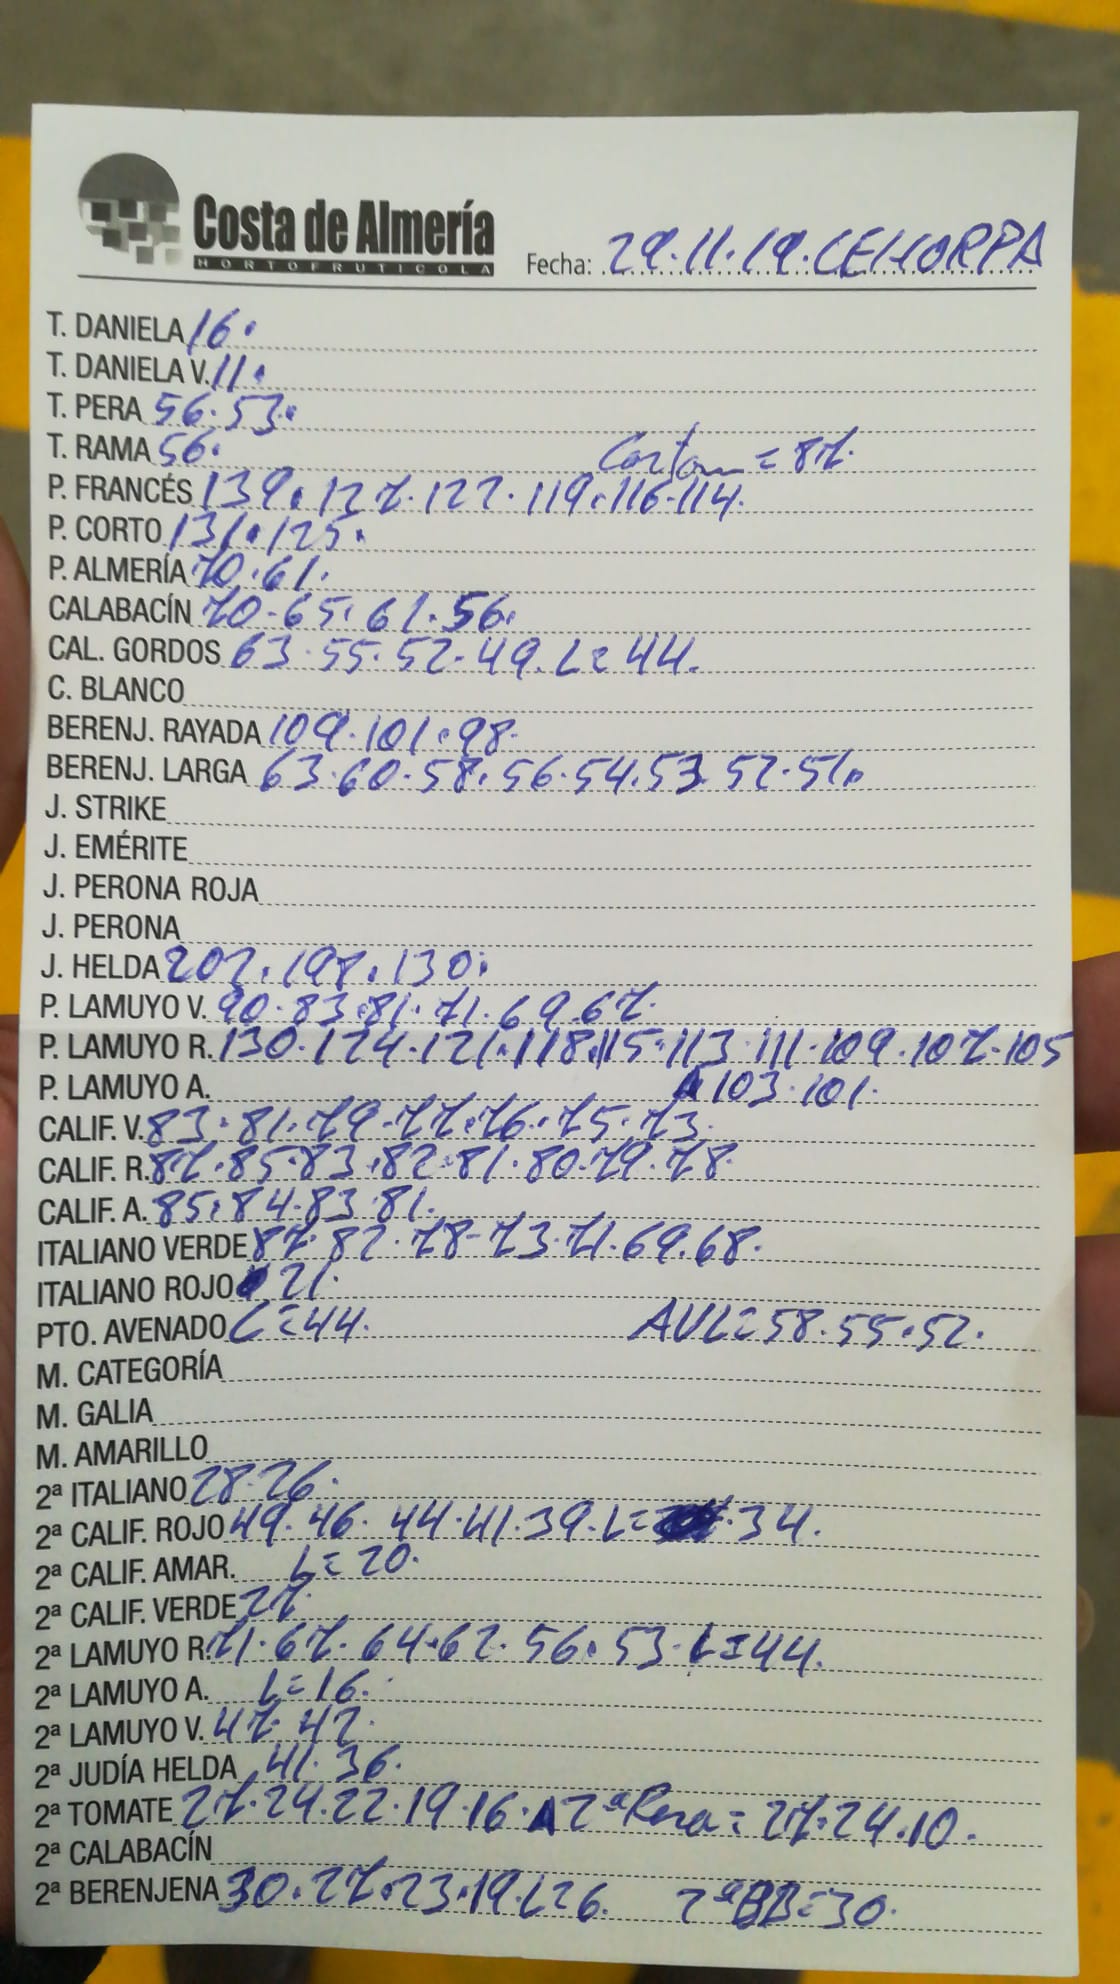 Costa de Almería
HORTOFRUTICOLA
Fecha: 29.11.19. CEHORPA
T. DANIELA 16.
T. DANIELA V. 11.
T. PERA 56. 53.
T. RAMA 56.
= 87.
P. FRANCÉS 139. 127. 122. 119. 116. 114.
P. CORTO 131. 125.
P. ALMERÍA 70. 61.
CALABACÍN 70. 65. 61. 56.
CAL. GORDOS 63. 55. 52. 49. L= 44.
C. BLANCO
BERENJ. RAYADA 109. 101. 98.
BERENJ. LARGA 63. 60. 58. 56. 54. 53. 52. 51.
J. STRIKE
J. EMÉRITE
J. PERONA ROJA
J. PERONA
J. HELDA 202. 198. 130.
P. LAMUYO V. 90. 83. 81. 71. 69. 67.
P. LAMUYO R. 130. 124. 121. 118. 115. 113. 111. 109. 107. 105
P. LAMUYO A. 103. 101.
CALIF. V. 83. 81. 79. 77. 76. 75. 73.
CALIF. R. 87. 85. 83. 82. 81. 80. 79. 78.
CALIF. A. 85. 84. 83. 81.
ITALIANO VERDE 87. 82. 78. 73. 71. 69. 68.
ITALIANO ROJO 21.
PTO. AVENADO L= 44. AVL= 58. 55. 52.
M. CATEGORÍA
M. GALIA
M. AMARILLO
2ª ITALIANO 28. 26.
2ª CALIF. ROJO 49. 46. 44. 41. 39. L= 34.
2ª CALIF. AMAR. L= 20.
2ª CALIF. VERDE 27.
2ª LAMUYO R. 71. 67. 64. 62. 56. 53. L= 44.
2ª LAMUYO A. L= 16.
2ª LAMUYO V. 47. 42.
2ª JUDÍA HELDA 41. 36.
2ª TOMATE 27. 24. 22. 19. 16. 2ª Pera= 27. 24. 10.
2ª CALABACÍN
2ª BERENJENA 30. 27. 23. 19. L= 6. 2ª BB= 30.